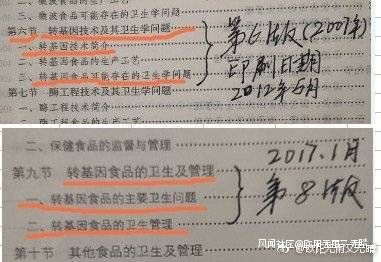 二、微波食品可能存在的卫生学问题
第六节 转基因技术及其卫生学问题
一、转基因技术简介
二、转基因食品的生产工艺
三、转基因食品可能存在的卫生学问题
第七节 酶工程技术及其卫生学问题
一、酶工程技术简介
第6版(2007年)
印刷日期
2012年6月
二、保健食品的监督与管理
第九节 转基因食品的卫生及管理
一、转基因食品的主要卫生问题
二、转基因食品的卫生管理
第十节 其他食品的卫生及管理
2017.1月
第8版